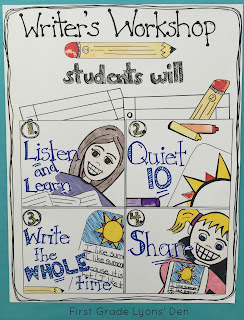 Writer's Workshop
students will
1.
Listen
and
Learn
2.
Quiet
10
3.
Write
the
WHOLE
time
I like sum
4.
Share
First Grade Lyons' Den